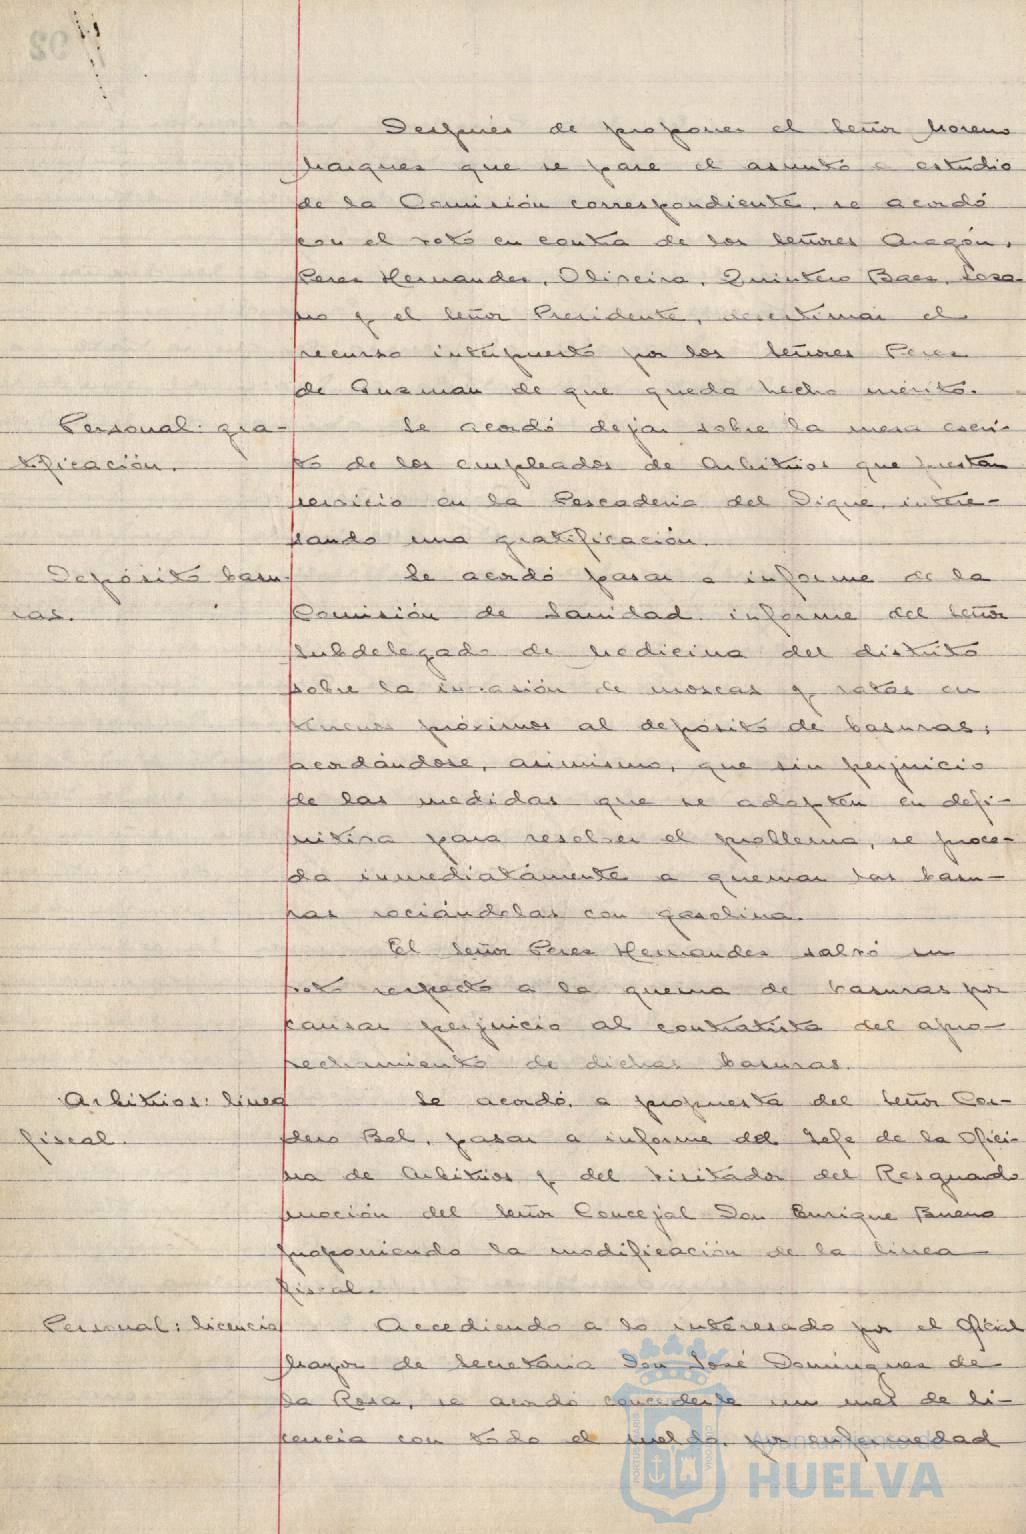 Después de proponer el Señor Moreno
Marquez que se pase el asunto a estudio
de la Comisión correspondiente, se acordó
con el voto en contra de los Señores Aragón,
Perez Hernandez, Oliveira, Quintero Baez, Loza-
no y el Señor Presidente, desestimar el
recurso interpuesto por los Señores Perez
de Guzman de que queda hecho mérito.
Personal: gra-
tificación.
Se acordó dejar sobre la mesa escri-
to de los empleados de Arbitrios que prestan
servicio en la Pescaderia del Dique, intere-
sando una gratificación.
Depósito basu-
ras.
Se acordó pasar a informe de la
Comisión de Sanidad informe del Señor
Subdelegado de Medicina del distrito
sobre la invasión de moscas y ratas en
terrenos próximos al depósito de basuras;
acordándose, asimismo, que sin perjuicio
de las medidas que se adopten en defi-
nitiva para resolver el problema, se proce-
da inmediatamente a quemar las basu-
ras rociándolas con gasolina.
El Señor Perez Hernandez salvó su
voto respecto a la quema de basuras por
causar perjuicio al contratista del apro-
vechamiento de dichas basuras.
Arbitrios: linea
fiscal.
Se acordó, a propuesta del Señor Cor-
dero Bel, pasar a informe del Jefe de la Ofici-
na de Arbitrios y del Visitador del Resguardo
moción del Señor Concejal Don Enrique Bueno
proponiendo la modificación de la linea
fiscal.
Personal: licencia
Accediendo a lo interesado por el Oficial
Mayor de Secretaria Don José Dominguez de
la Rosa, se acordó concederle un mes de li-
cencia con todo el sueldo, por enfermedad
Ayuntamiento de
HUELVA